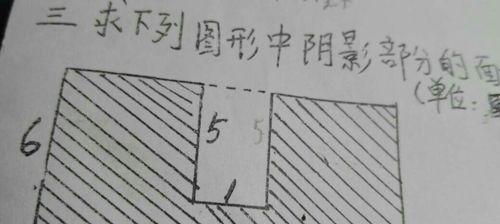 三 求下列图形中阴影部分的面
(单位:
6 5 5
1